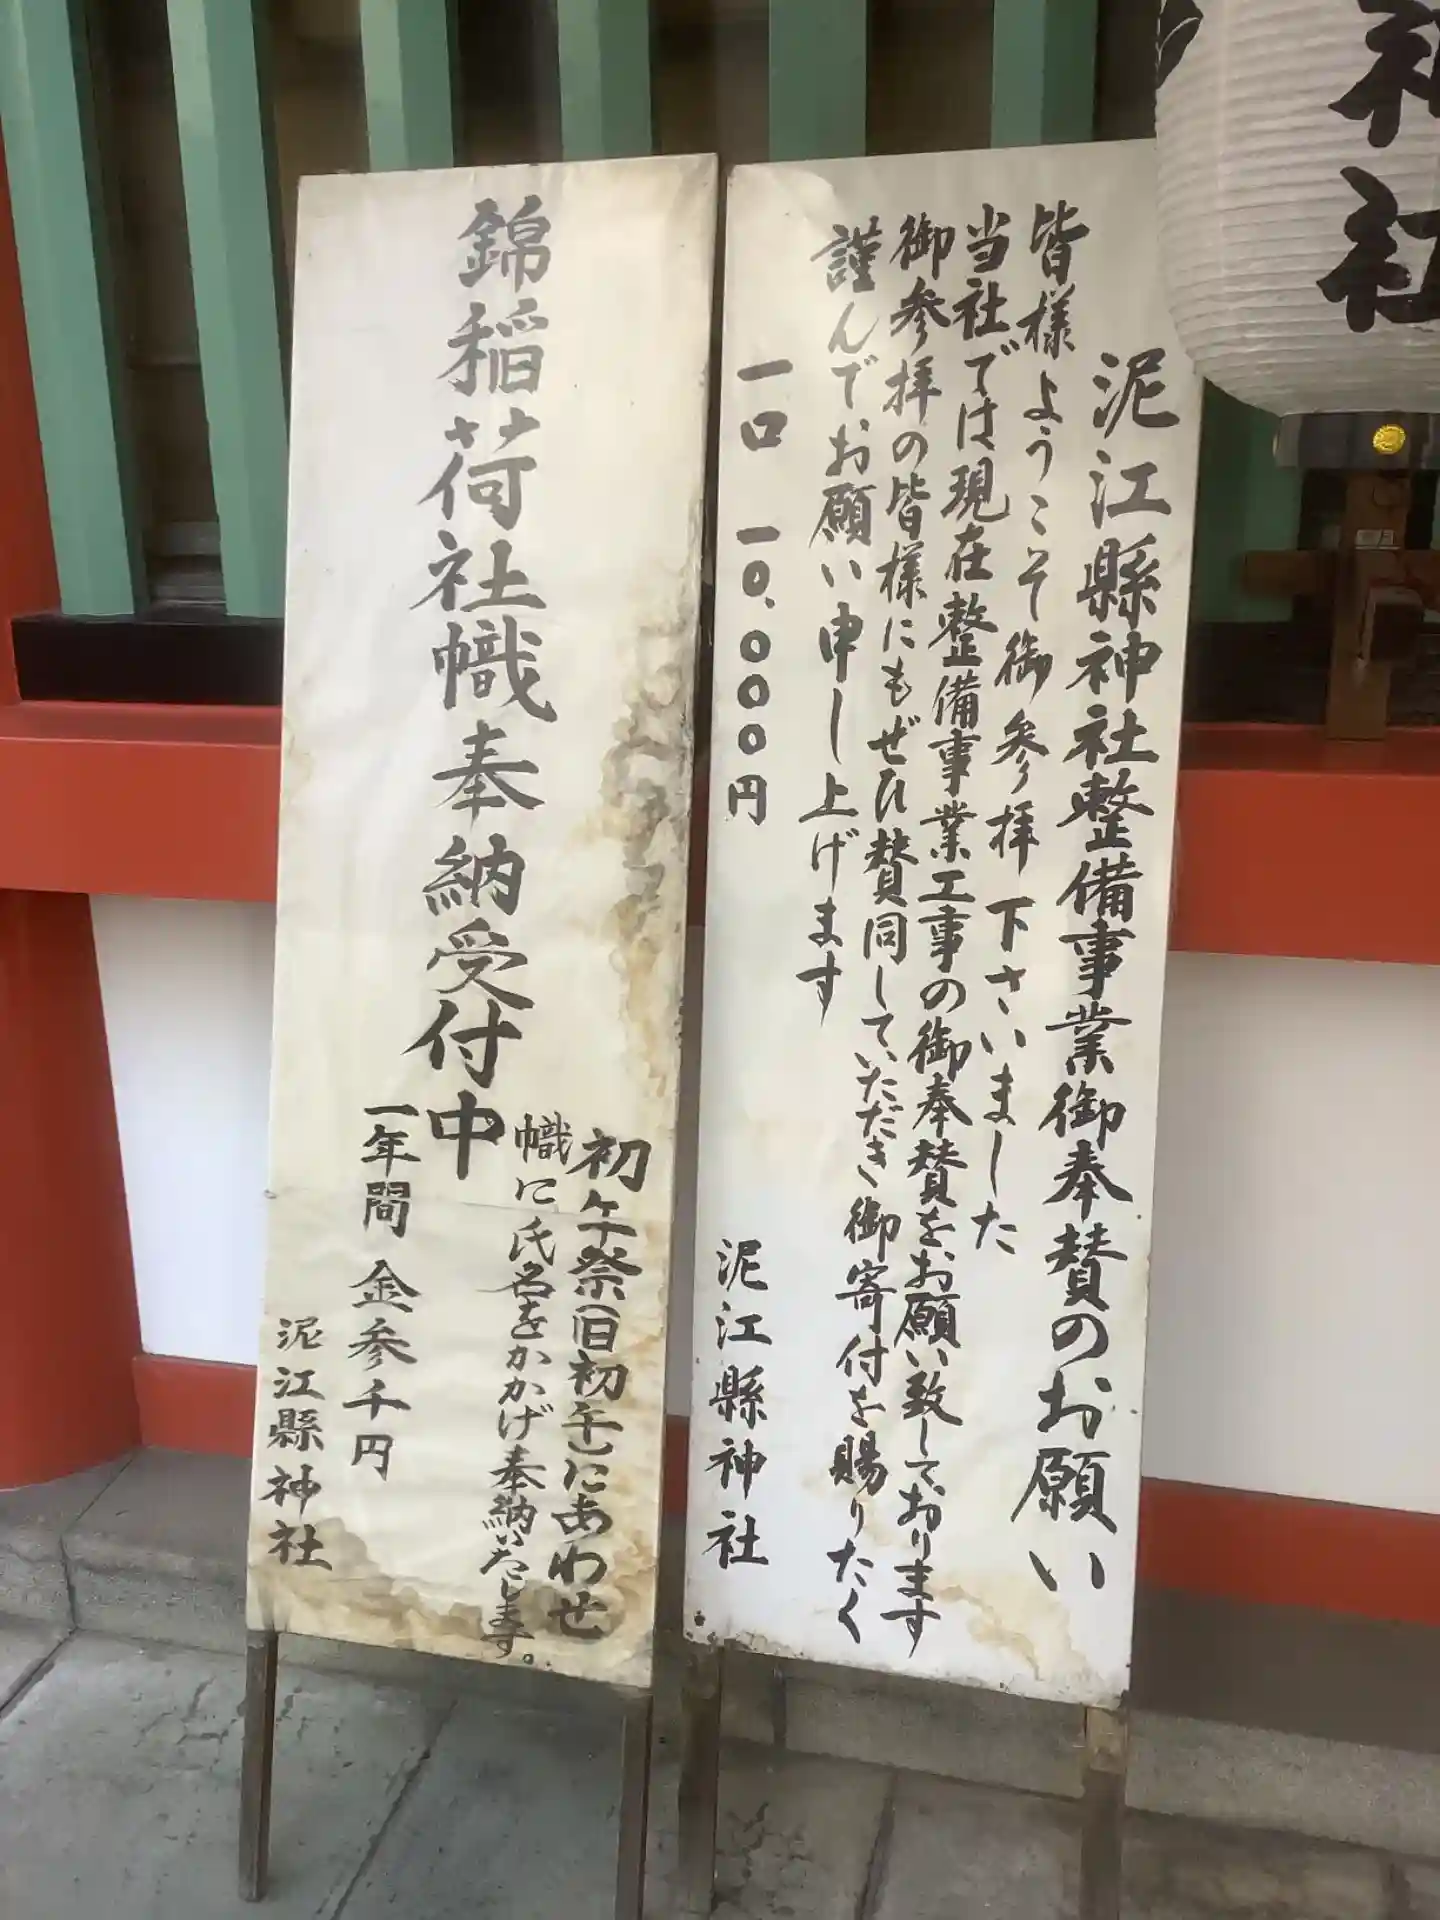 神社
泥江縣神社整備事業御奉賛のお願い
皆様ようこそ御参拝下さいました
当社では現在整備事業工事の御奉賛をお願い致しております
御参拝の皆様にもぜひ賛同していただき御寄付を賜りたく
謹んでお願い申し上げます
一口 一〇、〇〇〇円
泥江縣神社
錦稲荷社幟奉納受付中
初午祭(旧初午)にあわせ
幟に氏名をかかげ奉納いたします。
一年間 金参千円
泥江縣神社